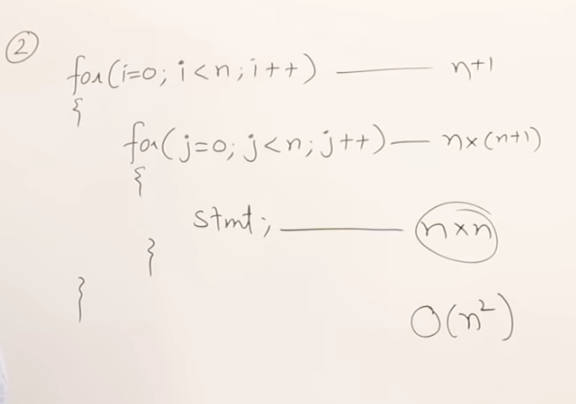 2
for(i=0; i<n; i++) —— n+1
{
for(j=0; j<n; j++) — n×(n+1)
{
stmt; —— n×n
}
}
O(n²)